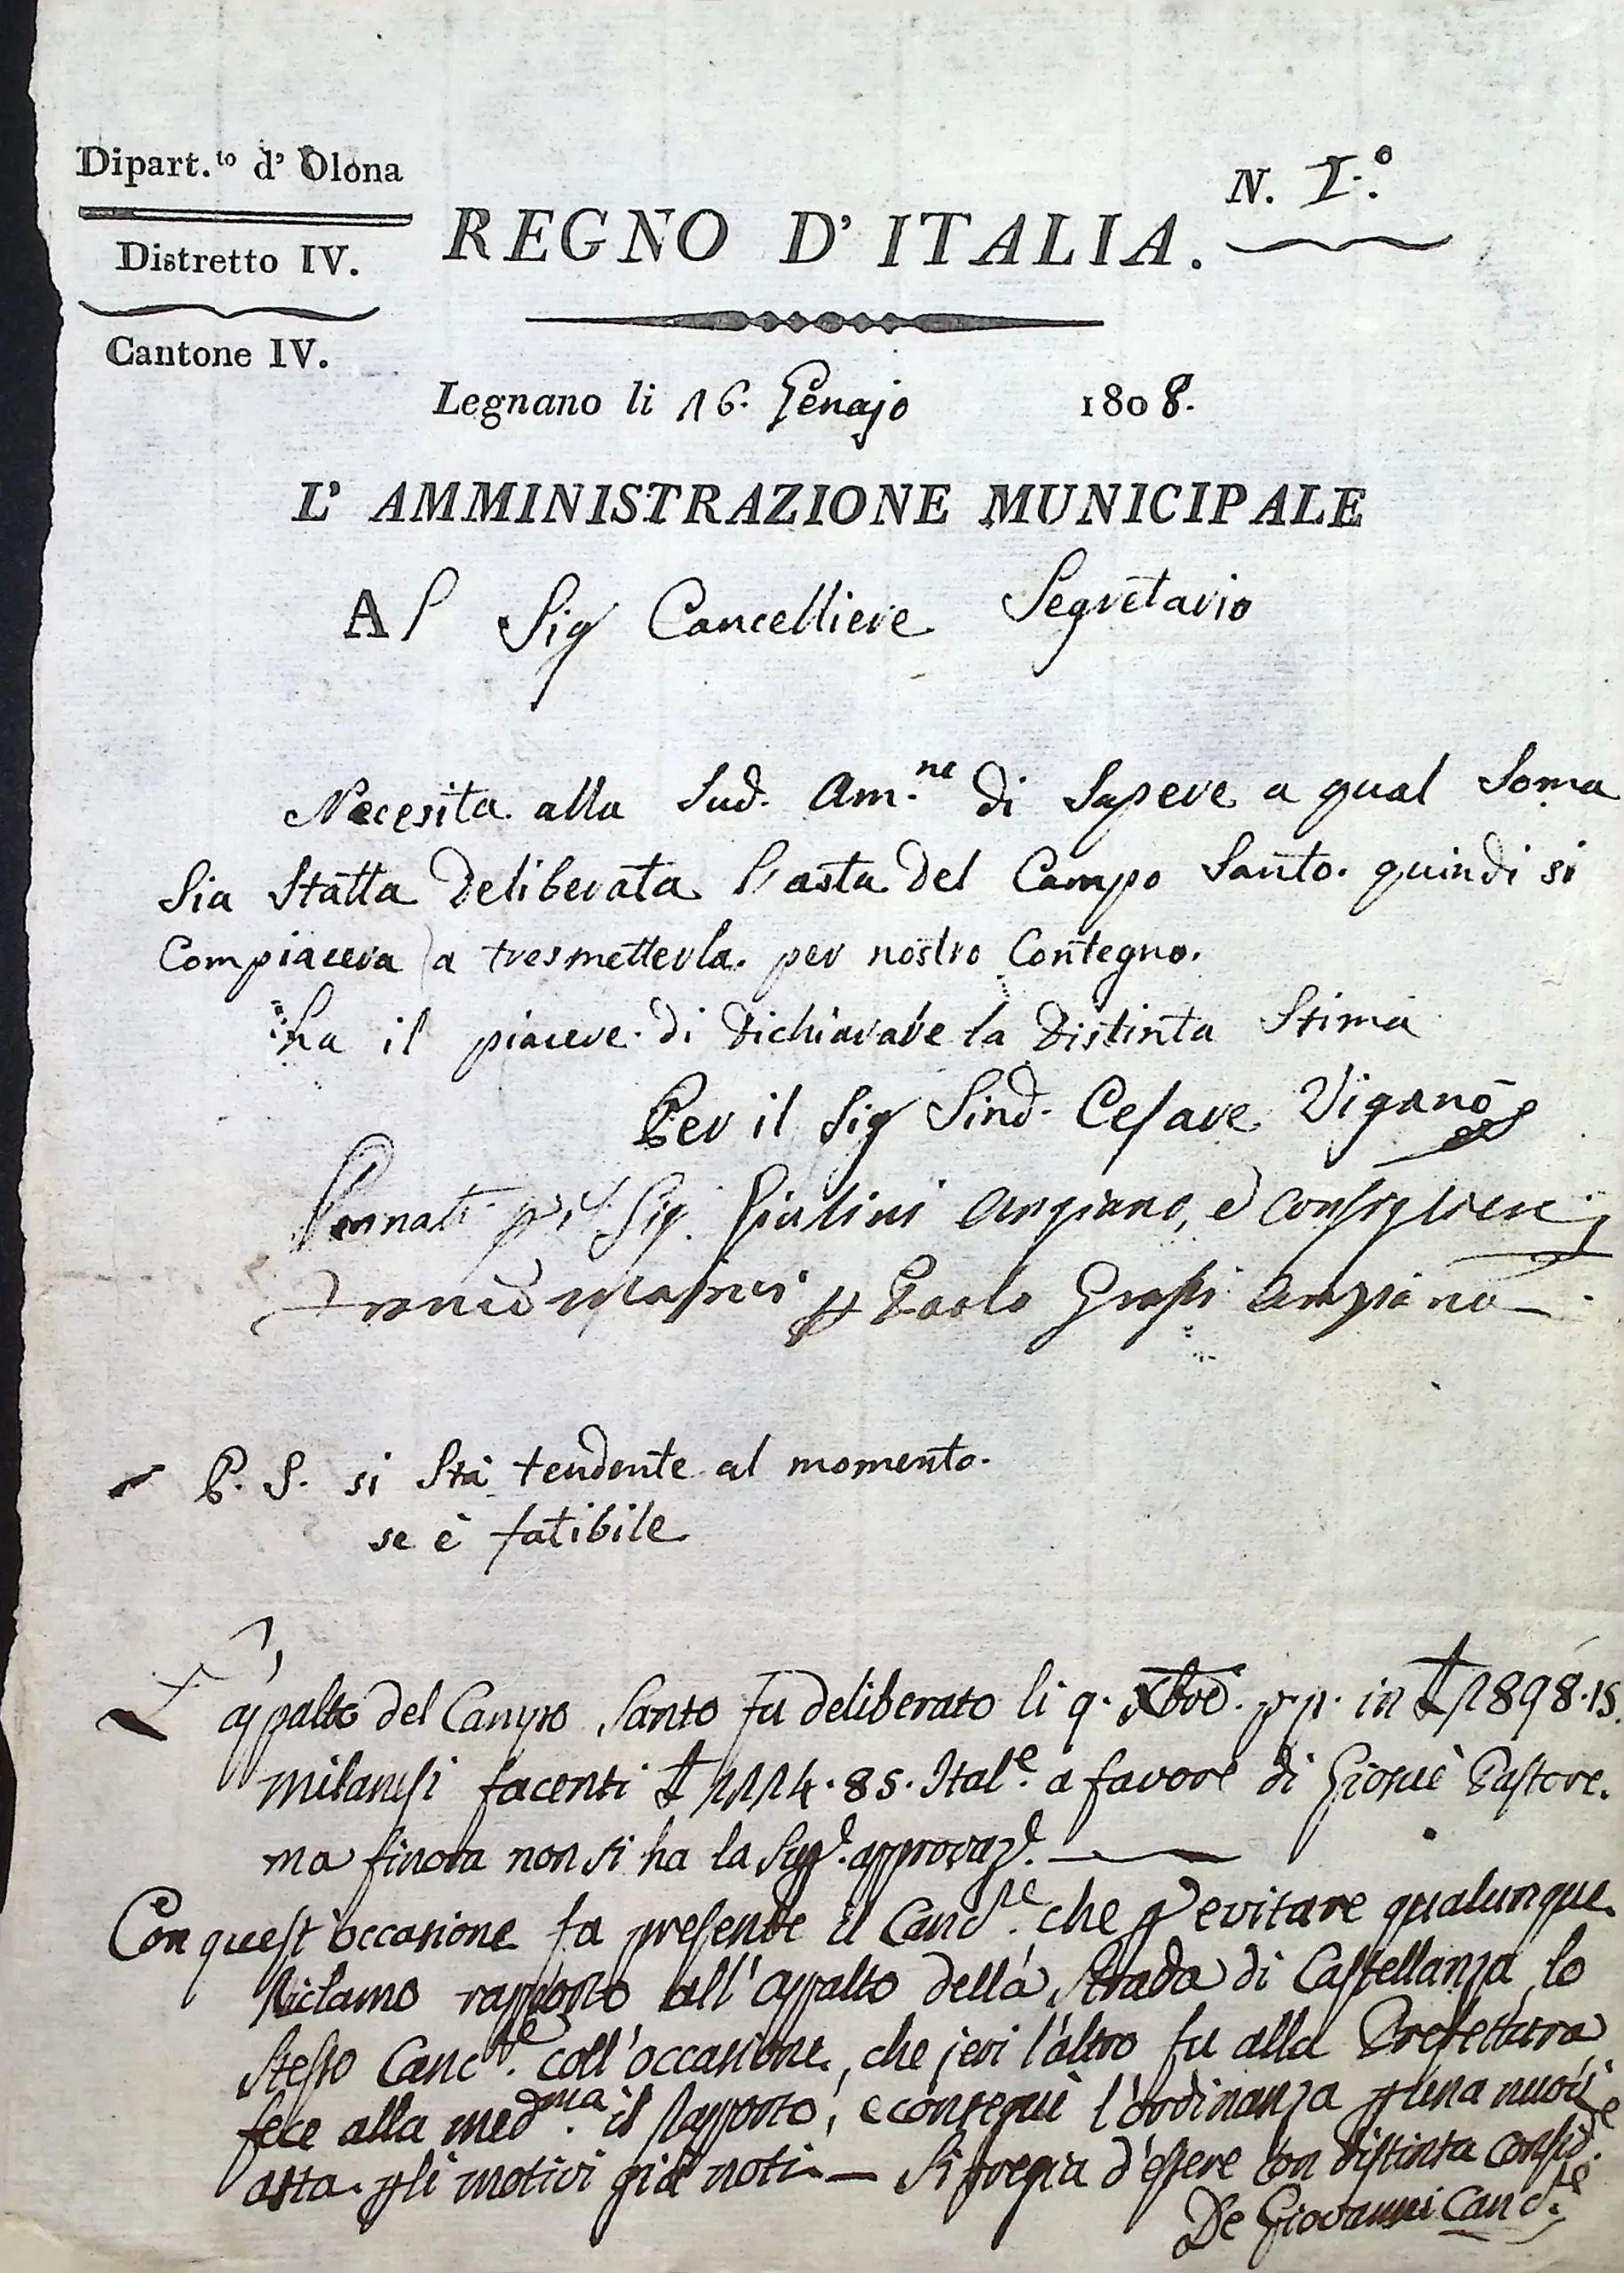 Dipart.to d' Olona
N. I.o
REGNO D' ITALIA.
Distretto IV.
Cantone IV.
Legnano li 16. Genajo 1808.
L' AMMINISTRAZIONE MUNICIPALE
Al Sig Cancelliere Segretario
Necesita alla Sud. Am.ne di Sapere a qual Soma
Sia Statta deliberata l'asta del Campo Santo. quindi si
Compiacera a tresmetterla. per nostro Contegno.
ha il piacere di dichiarare la distinta Stima
Per il Sig Sind. Cesare Viganò
Sig. Giulini Anziano, e Consigliere
Paolo Grassi Anziano
P. S. si Stà tendente al momento.
se è fatibile
L'appalto del Campo Santo fu deliberato li 9. Xbre. p.p. in £ 1898.15.
milanesi facenti £ 1114.85. Ital.e a favore di Giosuè Pastore.
ma finora non si ha la Sup.e approvaz.e
Con quest'occasione fa presente il Canc.re che p evitare qualunque
Riclamo rapporto all'appalto della Strada di Castellanza, lo
Stesso Canc.re coll'occasione, che jeri l'altro fu alla Prefettura
fece alla med.ma il rapporto, e conseguì l'ordinanza p una nuova
asta. p li motivi già noti — Si pregia d'essere con distinta consid.e
De Giovanni Canc.re